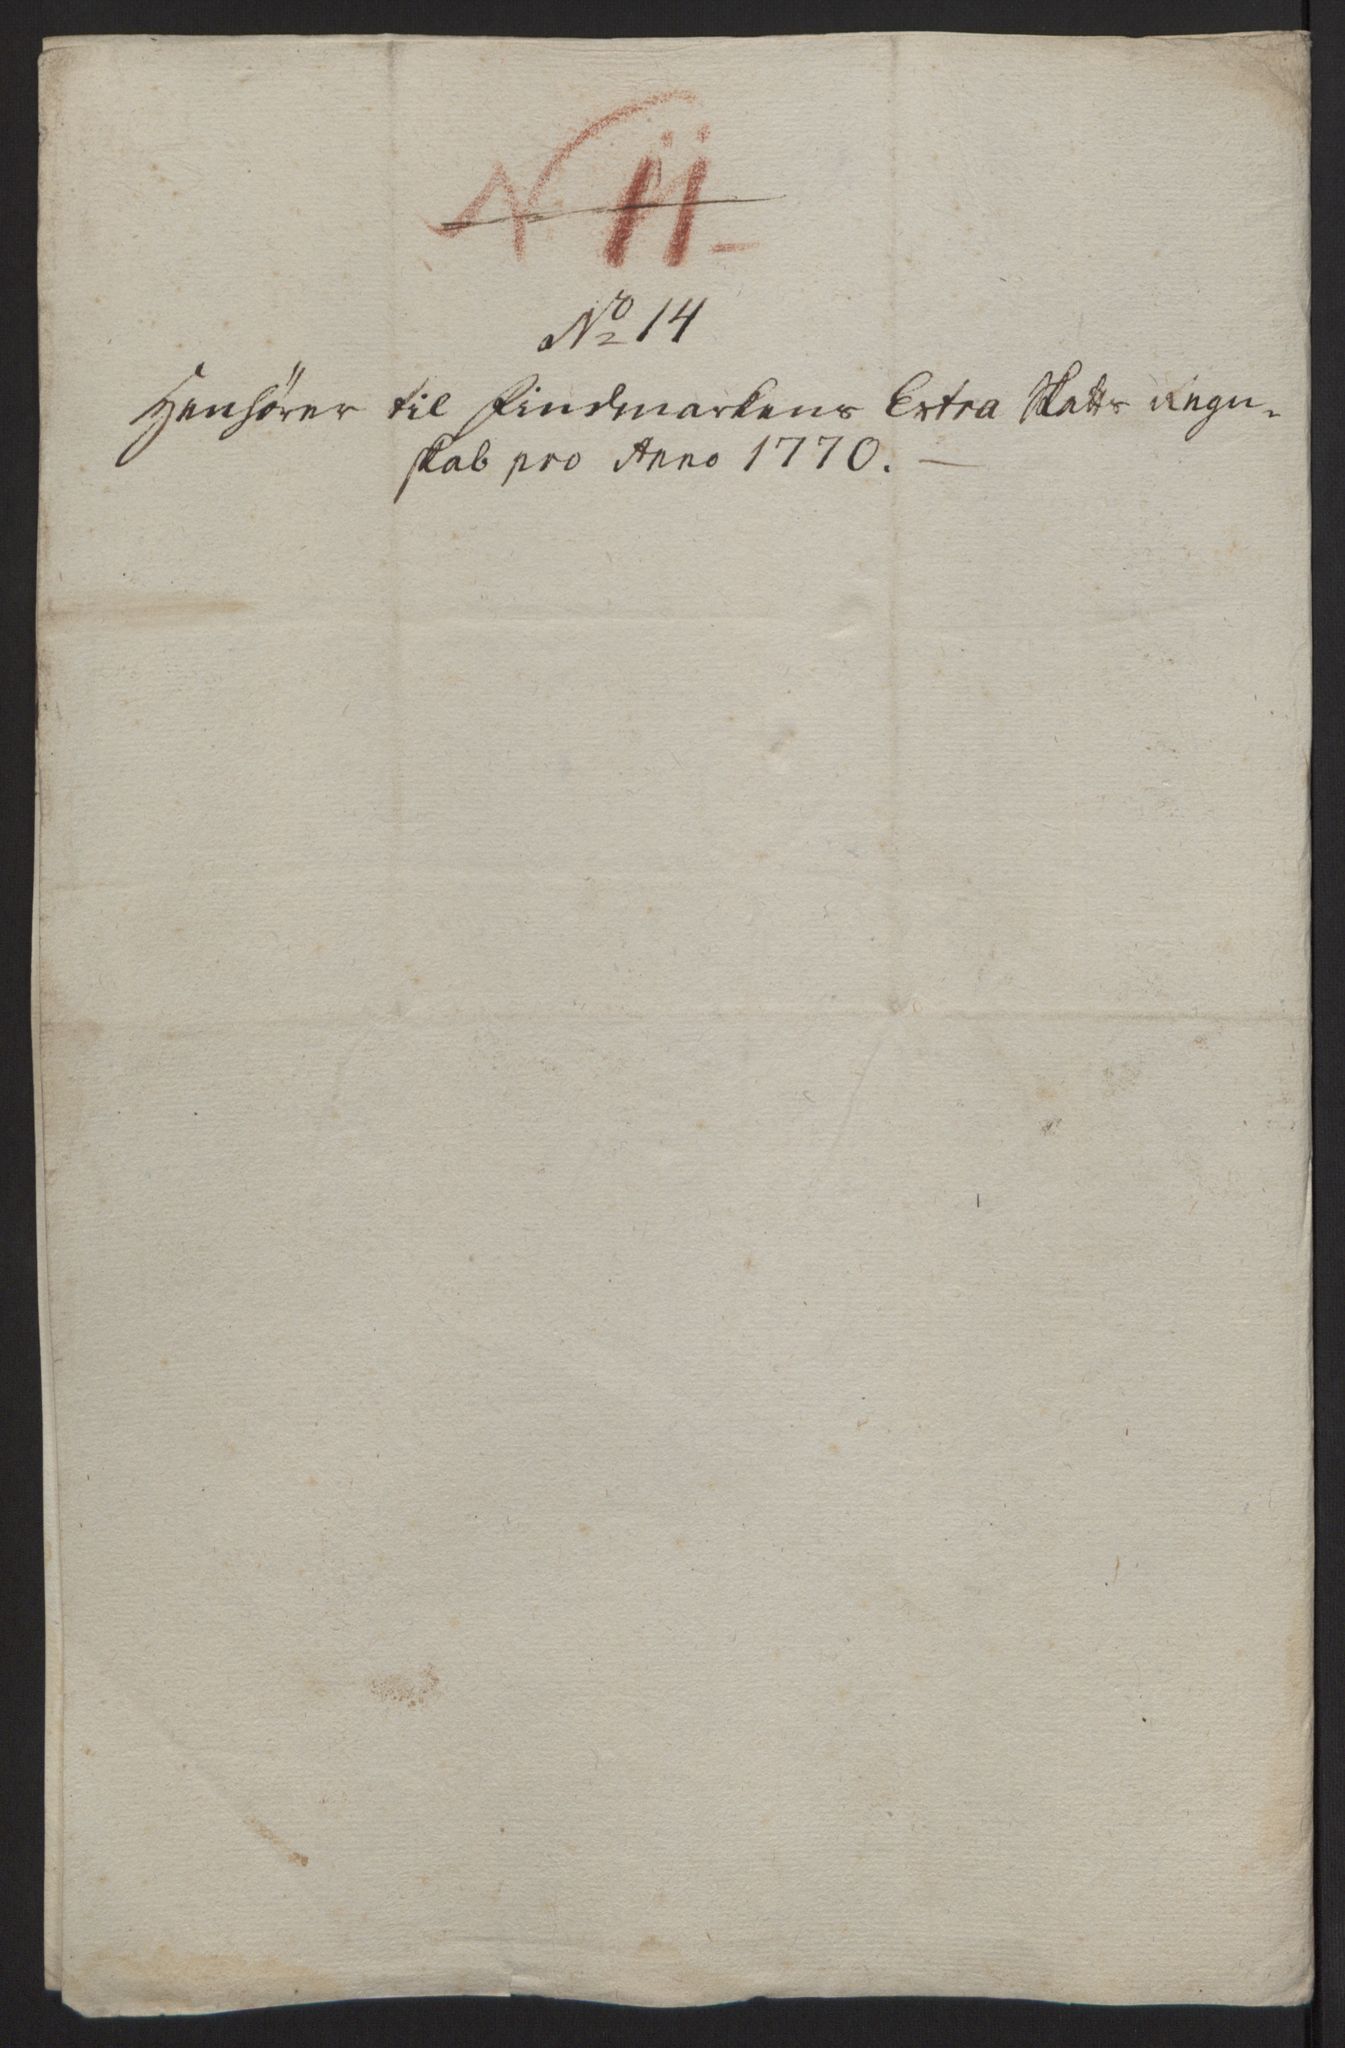 N 11
Nº 14
Henhörer til Findmarkens Extra Skatts Regn-
skab pro Anno 1770.